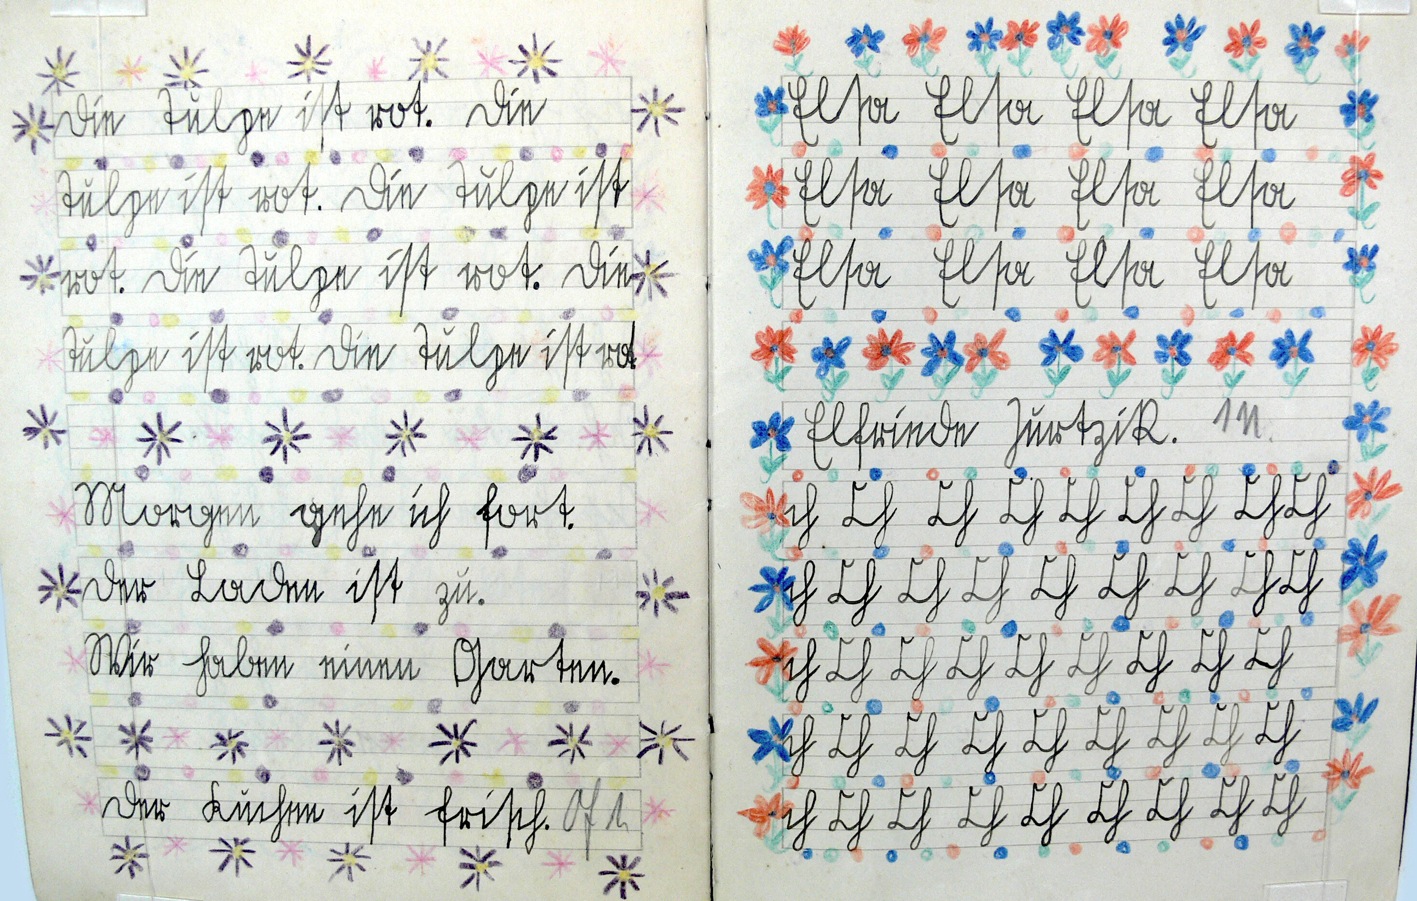 Die Tulpe ist rot. Die
Tulpe ist rot. Die Tulpe ist
rot. Die Tulpe ist rot. Die
Tulpe ist rot. Die Tulpe ist rot
Morgen gehe ich fort.
Der Laden ist zu.
Wir haben einen Garten.
Der Kuchen ist frisch.
Elsa Elsa Elsa Elsa
Elsa Elsa Elsa Elsa
Elsa Elsa Elsa Elsa
Elfriede
ch ch ch ch ch ch ch ch ch
ch ch ch ch ch ch ch ch ch
ch ch ch ch ch ch ch ch ch
ch ch ch ch ch ch ch ch ch
ch ch ch ch ch ch ch ch ch